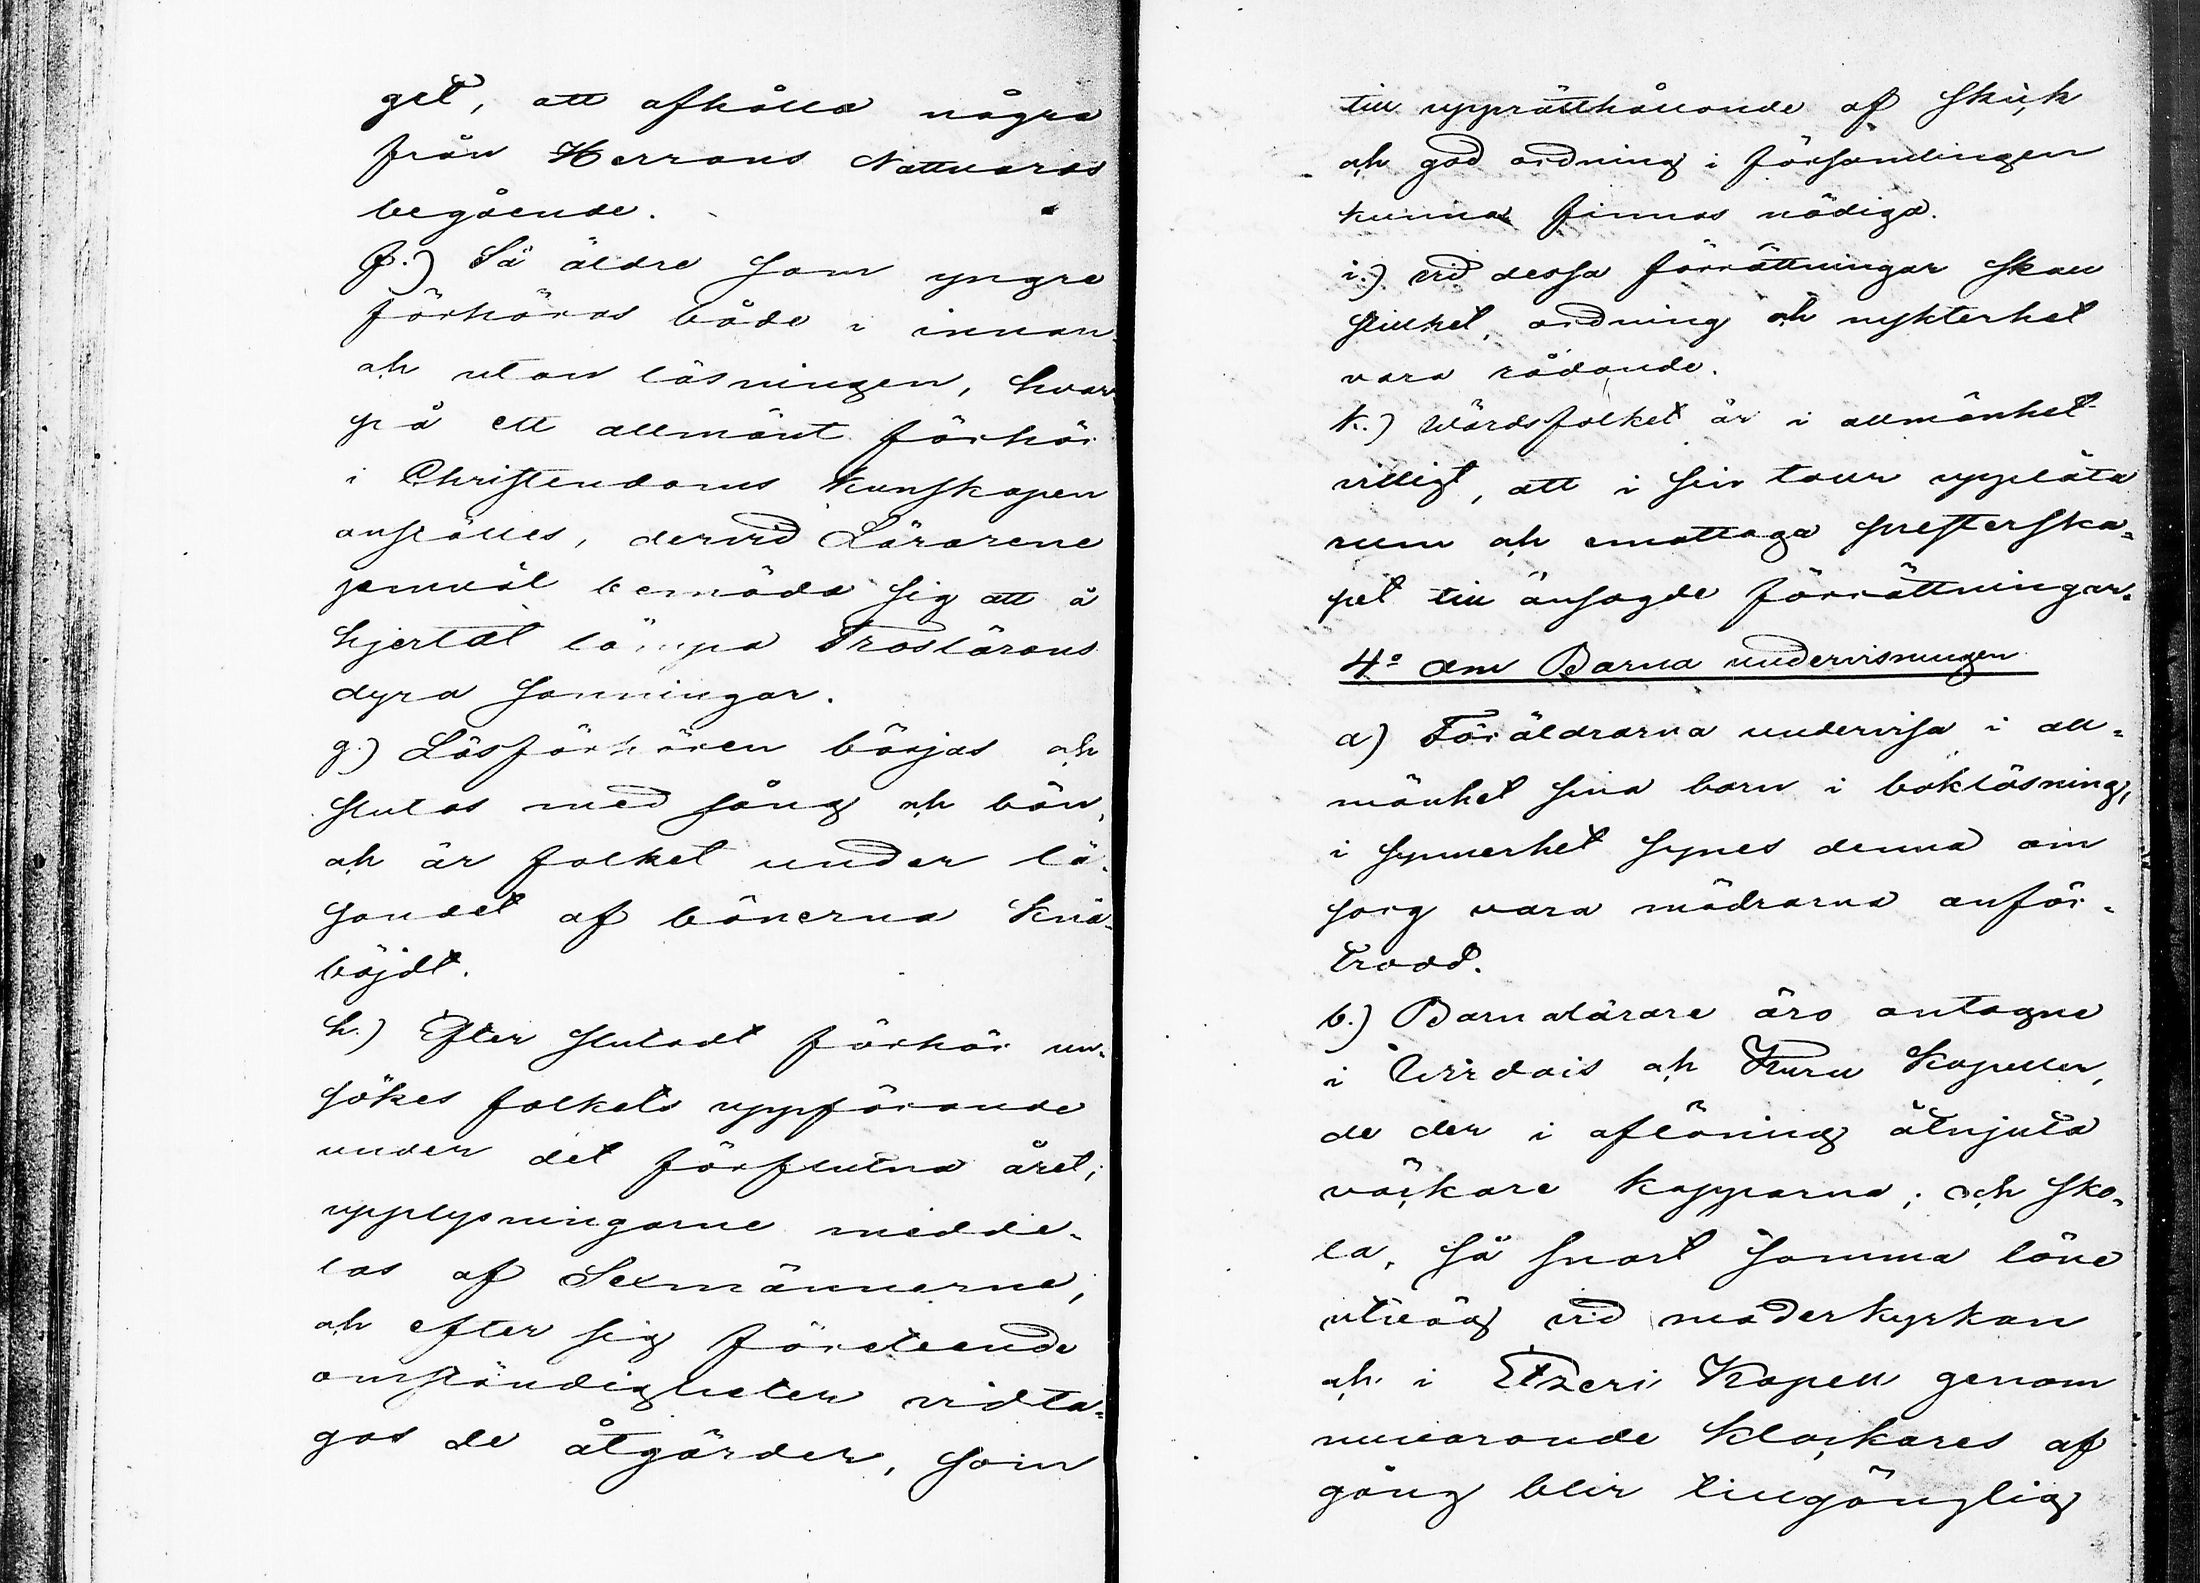 get, att afhålla några
från Herrans Nattvards
begående.
f.) Så äldre som yngre
förhöras både i innan-
och utan läsningen, hvar-
på ett allmänt förhör
i Christendoms kunskapen
anställes, dervid Lärarene
jemväl bemöda sig att å
hjertat lämpa Troslärans
dyra sanningar.
g.) Läsförhören börjas och
slutas med sång och bön,
och är folket under lä-
sandet af bönerna knä-
böjdt.
h.) Efter slutadt förhör un-
sökes folkets uppförande
under det förflutna året;
upplysningarne medde-
las af Sexmännerne,
och efter sig företeende
omständigheter vidta-
gas de åtgärder, som
till upprätthållande af skick
och god ordning i församlingen
kunna finnas nödiga.
i.) vid dessa förrättningar skall
stillhet, ordning och nykterhet
vara rådande.
k.) Wärdsfolket är i allmänhet
villigt, att i sin tour upplåta
rum och emottaga presterska-
pet till änsagde förrättningar.
4o Om Barna undervisningen
a) Föräldrarna undervisa i all-
mänhet sina barn i bokläsning,
i synnerhet synes denna om
sorg vara mödrarna anför-
trodd.
b.) Barnalärare äro antagne
i Wirdois och Kuru Kapeller,
de der i aflöning åtnjuta
väckare kapparna; och ska-
la, så snart samma löne
utväg vid moderkyrkan
och i Etzeri Kapell genom
nuvarande klockares af
gång blir tillgänglig